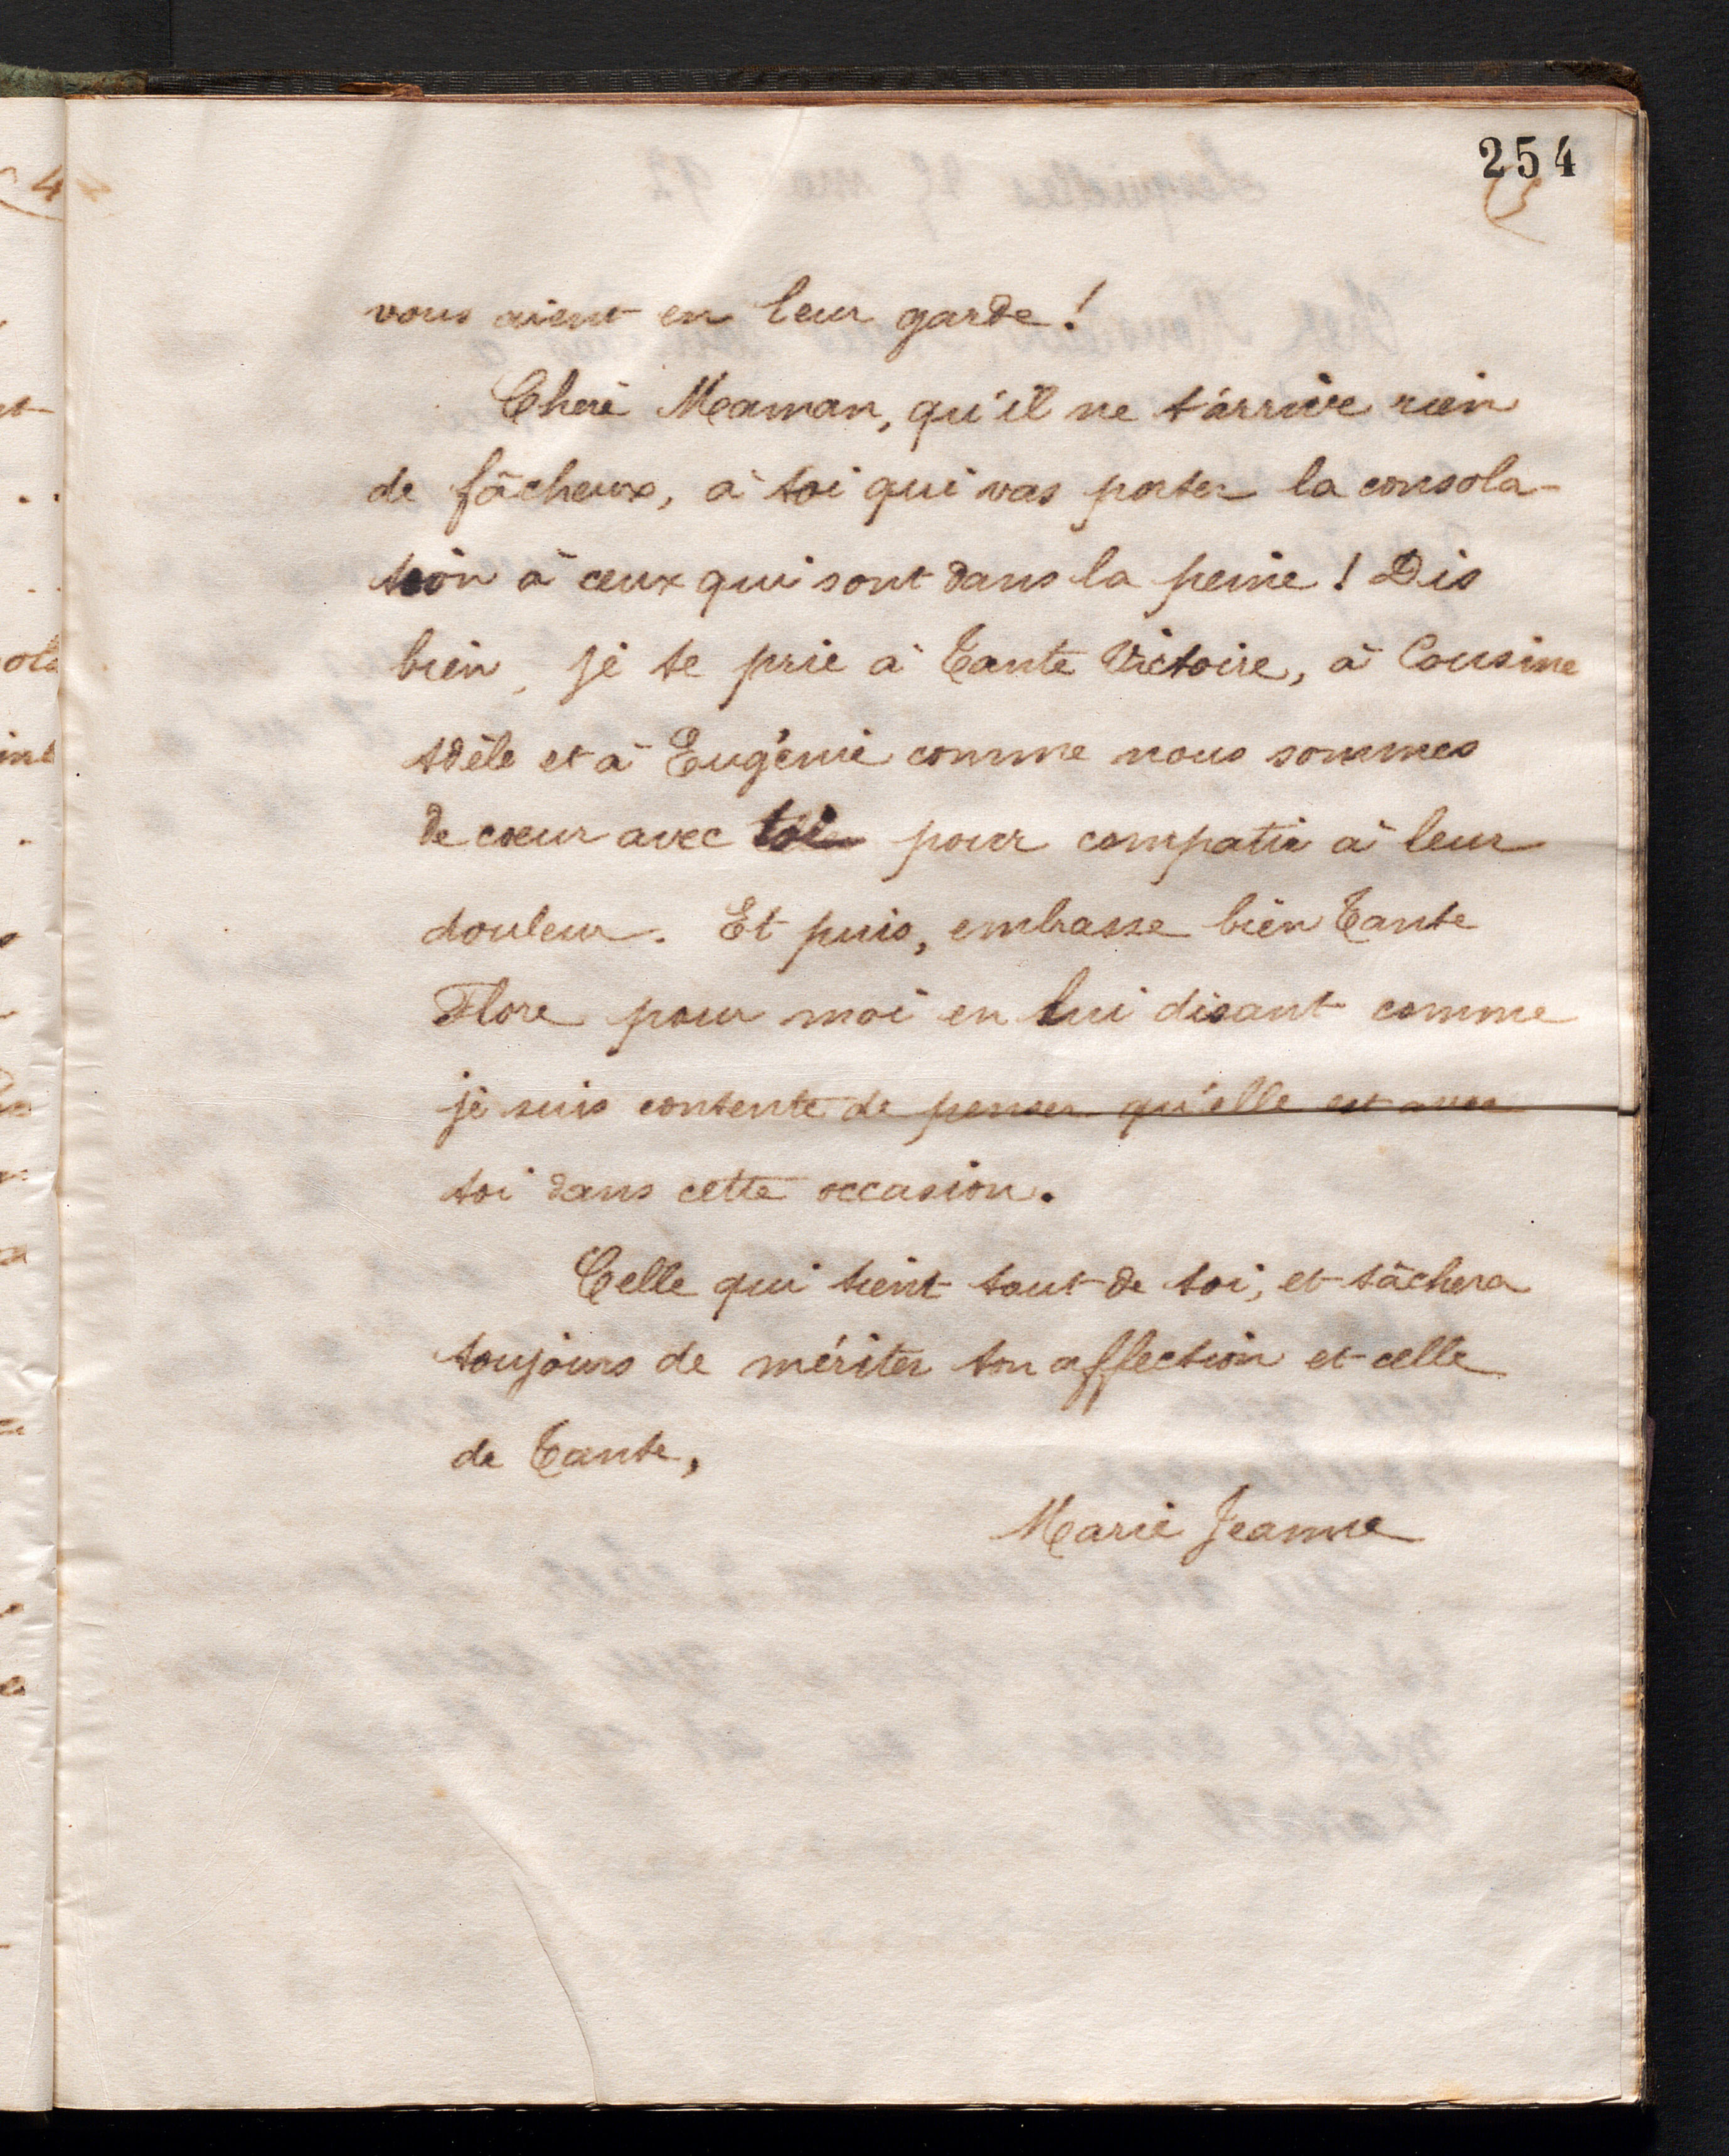 254
(5
vous aient en leur garde!
Chère Maman, qu'il ne t'arrive rien
de fâcheux, à toi qui vas porter la consola-
tion à ceux qui sont dans la peine! Dis
bien, je te prie à Tante Victoire, à Cousine
Adèle et à Eugénie comme nous sommes
de coeur avec toi pour compatir à leur
douleur. Et puis, embrasse bien Tante
Flore pour moi en lui disant comme
je suis contente de penser qu'elle est avec
toi dans cette occasion.
Celle qui tient tout de toi, et tâchera
toujours de mériter ton affection et celle
de Tante,
Marie Jeanne